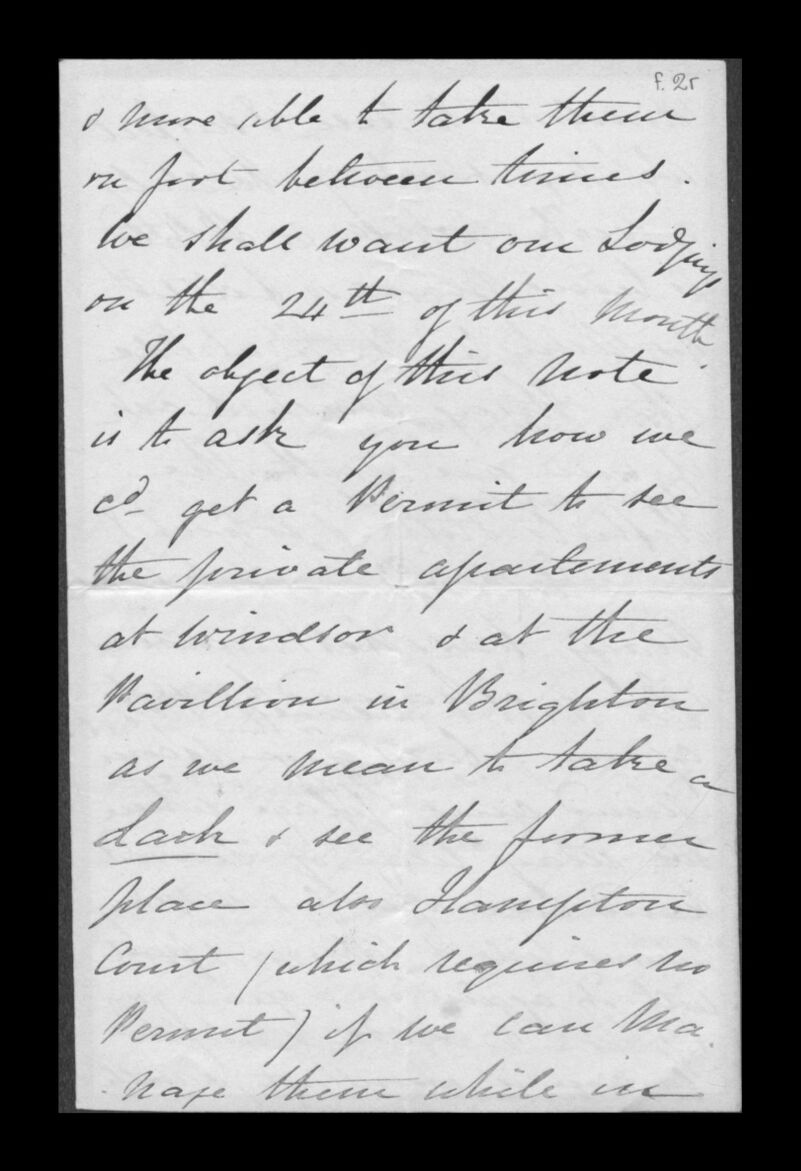 f. 2r
& more able to take them
on foot between times.
We shall want our Lodgings
on the 24th of this Month.
The object of this Note
is to ask you how we
cd get a Permit to see
the private apartements
at Windsor & at the
Pavillion in Brighton
as we mean to take a
dash & see the former
place also Hampton
Court (which requires no
Permit) if we can Ma
nage them while in